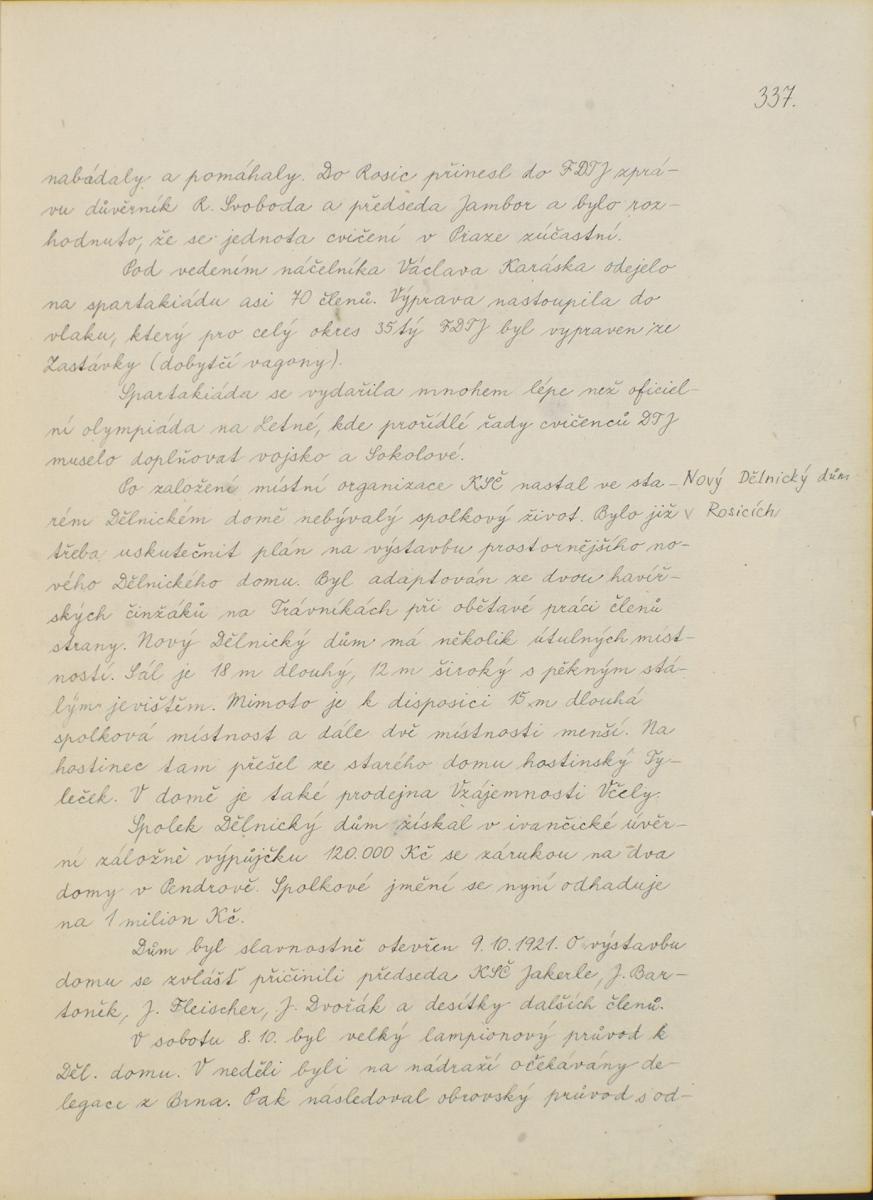 337.
nabádaly a pomáhaly. Do Rosic přinesl do FDTJ zprá-
vu důvěrník R. Svoboda a předseda Jambor a bylo roz-
hodnuto, že se jednota cvičení v Praze zúčastní.
Pod vedením náčelníka Václava Karáska odejelo
na spartakiádu asi 70 členů. Výprava nastoupila do
vlaku, který pro celý okres 35tý FDTJ byl vypraven ze
Zastávky (dobytčí vagony).
Spartakiáda se vydařila mnohem lépe než oficiel-
ní olympiáda na Letné, kde prořídlé řady cvičenců DTJ
muselo doplňovat vojsko a Sokolové.
Po založení místní organizace KSČ nastal ve sta-
rém Dělnickém domě nebývalý spolkový život. Bylo již
třeba uskutečnit plán na výstavbu prostornějšího no-
vého Dělnického domu. Byl adaptován ze dvou havíř-
ských činžáků na Trávníkách při obětavé práci členů
strany. Nový Dělnický dům má několik útulných míst-
ností. Sál je 18 m dlouhý, 12 m široký s pěkným stá-
lým jevištěm. Mimoto je k disposici 15 m dlouhá
spolková místnost a dále dvě místnosti menší. Na
hostinec tam přešel ze starého domu hostinský Ty-
leček. V domě je také prodejna Vzájemnosti Včely.
Spolek Dělnický dům získal v ivančické úvěr-
ní záložně výpůjčku 120.000 Kč se zárukou na dva
domy v Pendrově. Spolkové jmění se nyní odhaduje
na 1 milion Kč.
Dům byl slavnostně otevřen 9.10.1921. O výstavbu
domu se zvlášť přičinili předseda KSČ Jakerle, J. Bar-
toněk, J. Fleischer, J. Dvořák a desítky dalších členů.
V sobotu 8.10. byl velký lampionový průvod k
Děl. domu. V neděli byli na nádraží očekávány de-
legace z Brna. Pak následoval obrovský průvod s od-
Nový Dělnický dům
v Rosicích